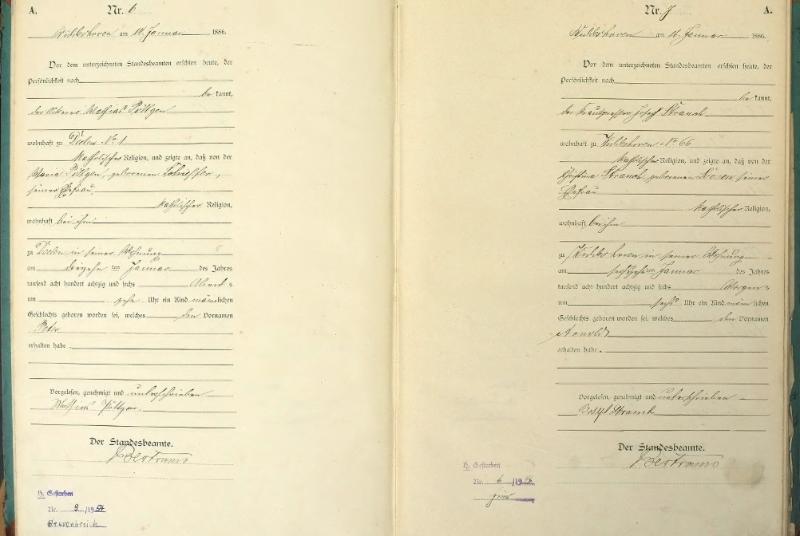 A.
Nr. 6
am 14. Januar 1886.
Vor dem unterzeichneten Standesbeamten erschien heute, der
Persönlichkeit nach
be kannt,
der Mathias Pöttgen
wohnhaft zu Dielen No. 1
katholischer Religion, und zeigte an, daß von der
Maria Pöttgen, geborenen
seiner Ehefrau
katholischer Religion,
wohnhaft bei ihm
zu Dielen in seiner Wohnung
am dreizehn ten Januar des Jahres
tausend acht hundert achtzig und sechs Abends
um zehn Uhr ein Kind männ lichen
Geschlechts geboren worden sei, welches den Vornamen
Peter
erhalten habe
Vorgelesen, genehmigt und unterschrieben
Mathias Pöttgen
Der Standesbeamte.
Bertrams
Gestorben
Nr. 9 /19
A.
Nr. 7
am Januar 1886.
Vor dem unterzeichneten Standesbeamten erschien heute, der
Persönlichkeit nach
be kannt,
der Josef Stranck
wohnhaft zu No. 66
katholischer Religion, und zeigte an, daß von der
Christina Stranck, geborenen seiner
Ehefrau
katholischer Religion,
wohnhaft bei ihm
zu in seiner Wohnung
am ten Januar des Jahres
tausend acht hundert achtzig und sechs Morgens
um sechs Uhr ein Kind männ lichen
Geschlechts geboren worden sei, welches den Vornamen
Arnold
erhalten habe.
Vorgelesen, genehmigt und unterschrieben
Josef Stranck
Der Standesbeamte.
Bertrams
Gestorben
Nr. 6 /19